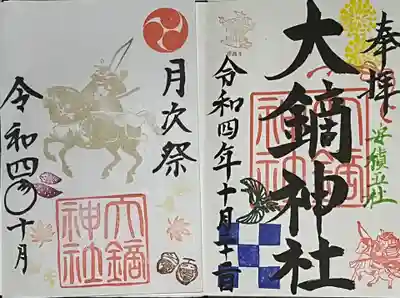 奉拝
安積五社
大鏑神社
令和四年十月十二日
大鏑神社
月次祭
令和四年十月
大鏑神社